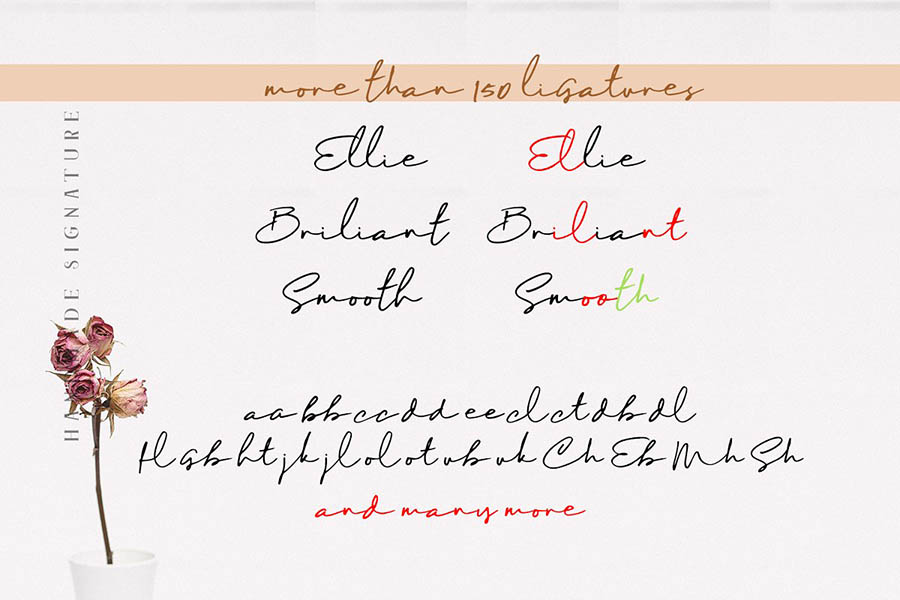 more than 150 ligatures
Ellie Ellie
Briliant Briliant
Smooth Smooth
aa bb cc dd ee cl ct db dl
fl gb ht jk jl ol ot ub uk Ch Eb Mh Sh
and many more
SIGNATURE